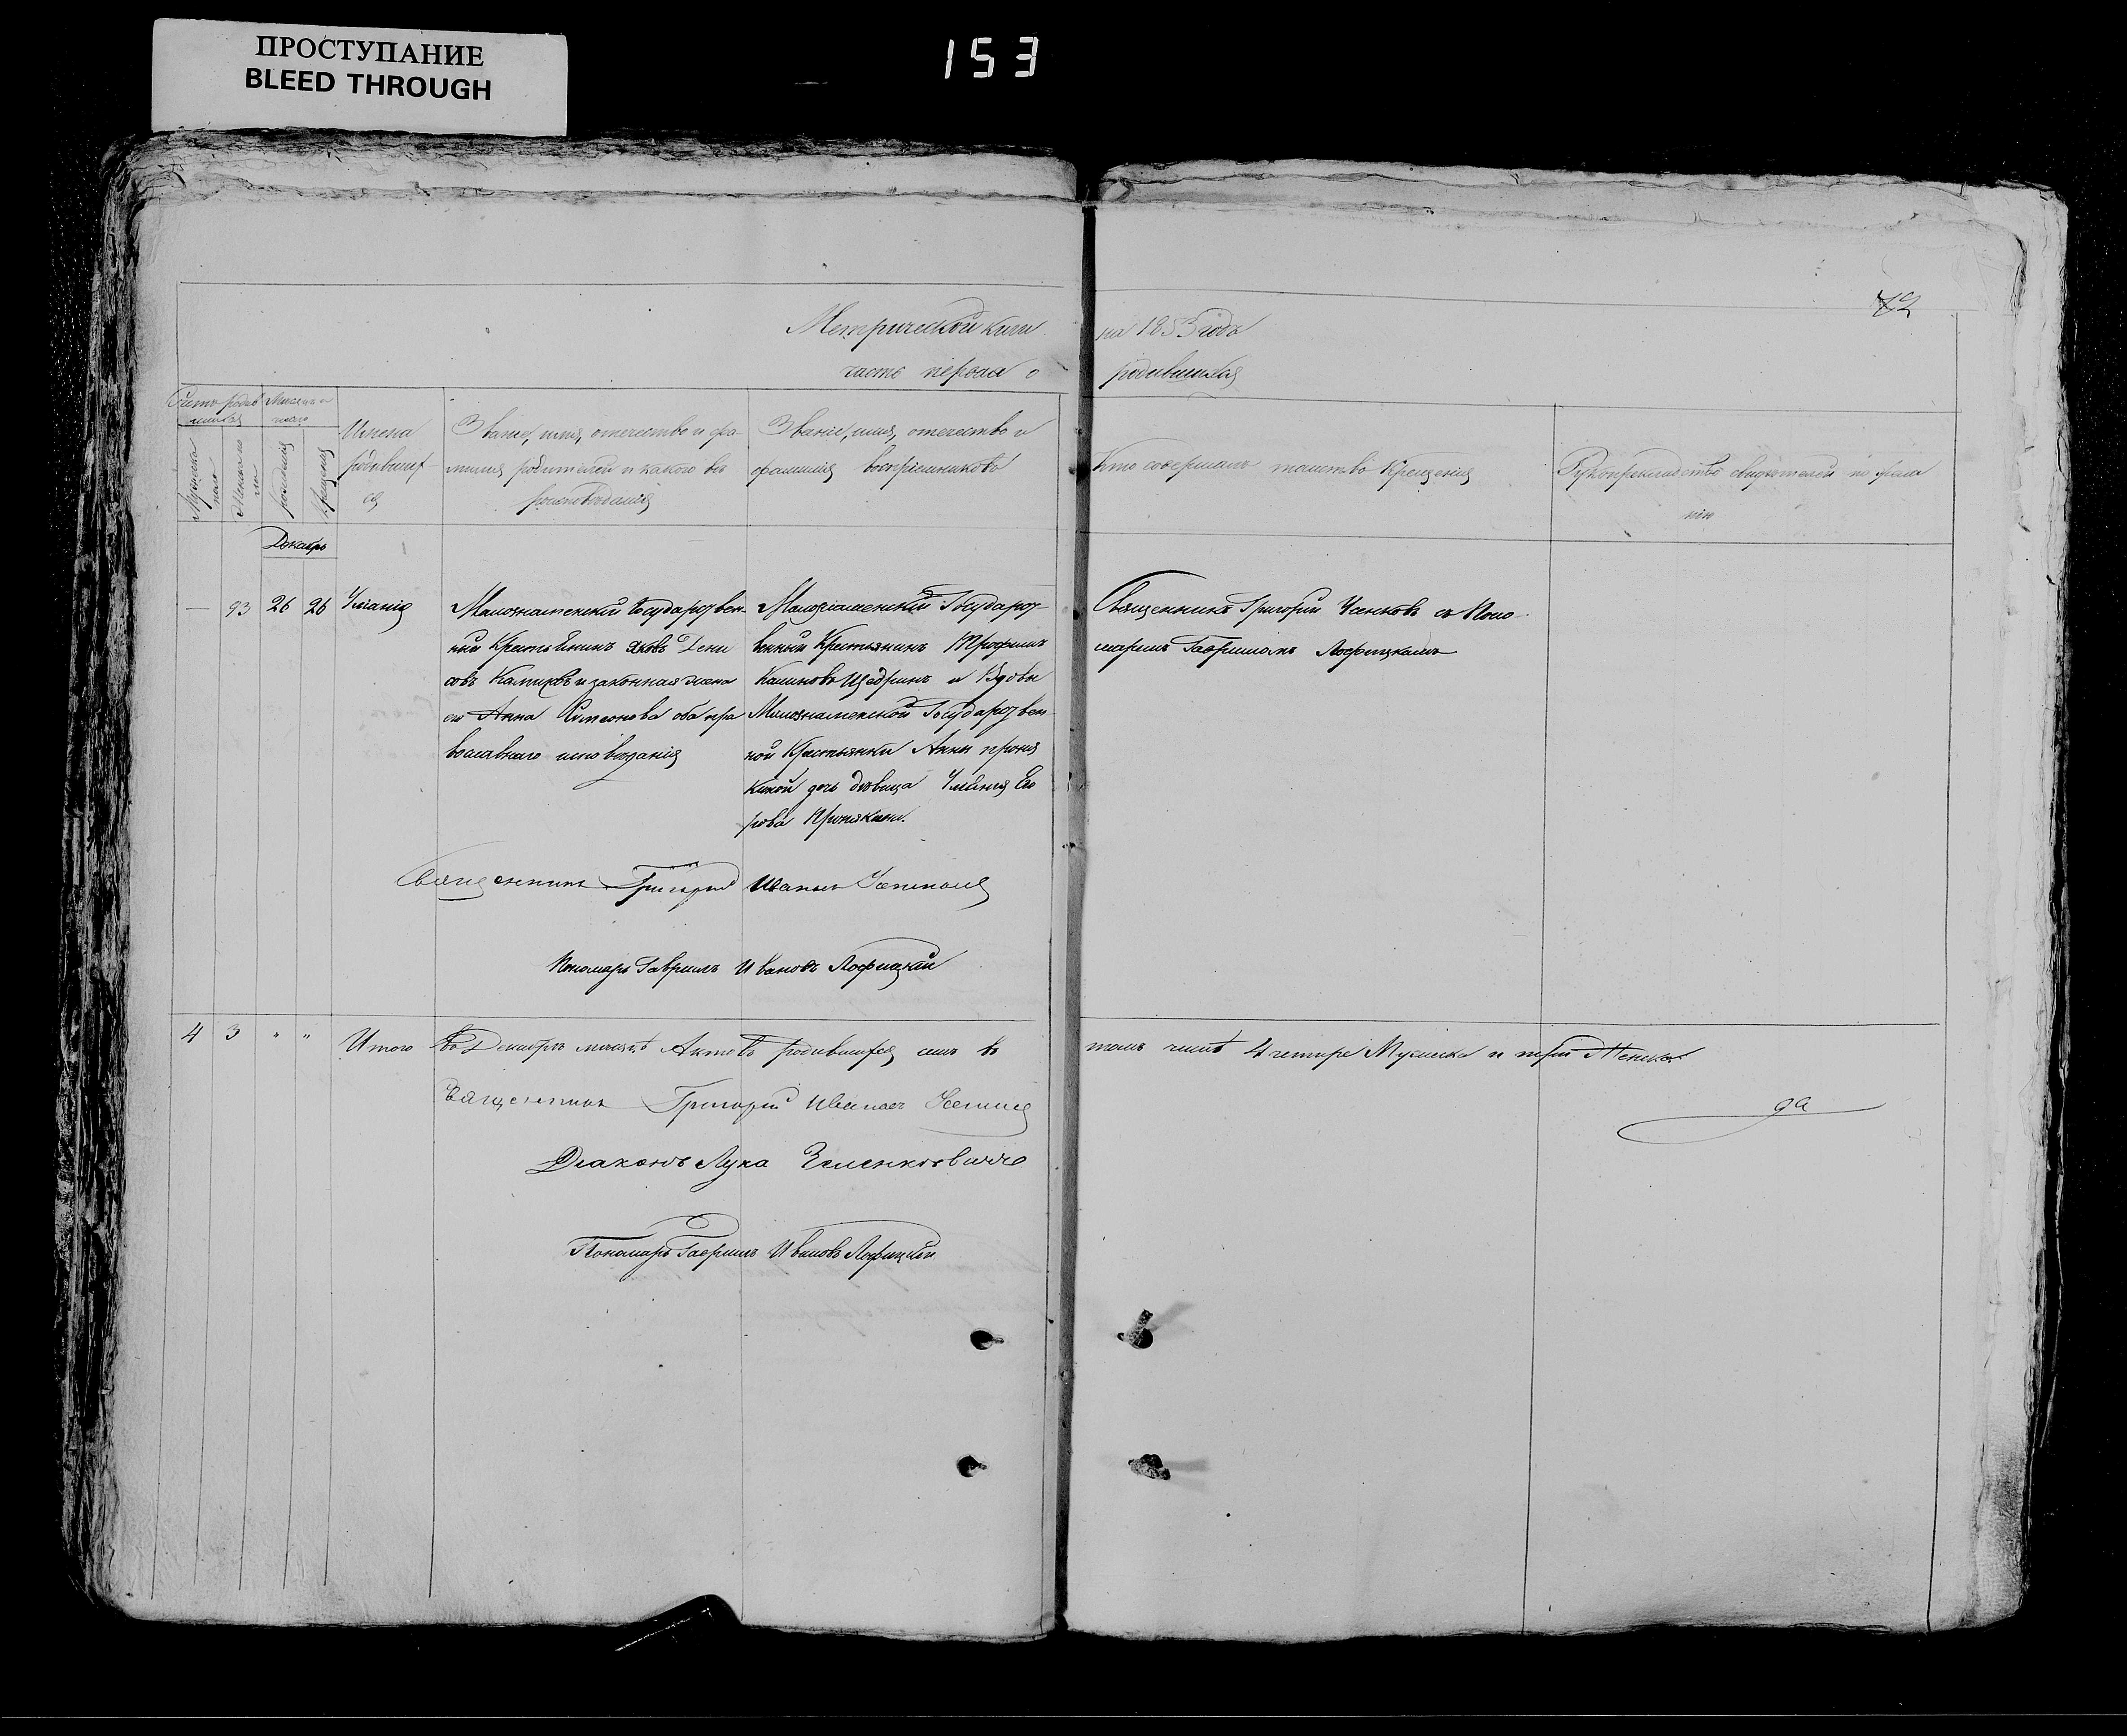 ПРОСТУПАНИЕ
BLEED THROUGH
153
Метрической книги на 1853 годъ
часть первая о родившихся
Счетъ родившихся
Мужеска пола
Женска пола
Месяцъ и число
рождения
крещения
Имена
родившихся
Званіе, имя, отечество и фа-
милия родителей и какого ве
роисповедания
Званіе, имя, отечество и
фамилия воспріемниковъ
Кто совершалъ таинство Крещения
Рукоприкладство свидетелей по жела
нію
Декабрь
— 93 26 26 Улианія
Малознаменскій Государствен-
ный Крестьянинъ Яковъ Дени
совъ и законная жена
его Анна Симеонова оба пра
вославнаго исповеданія
Малознаменскій Государст-
венный Крестьянинъ Трофимъ
Щедринъ и Вдовы
Малознаменской Государствен
ной Крестьянки Анны Проня
киной дочь девица Улиания Его
рова Пронякина.
Священникъ Григорій съ Поно-
маремъ Гавриломъ Лофицкимъ
Священникъ Григорій Иванъ
Пономарь Гаврилъ Ивановъ Лофицкий
4 3 " " Итого Въ Декабре месяце Актовъ родившихся семь въ томъ числе 4 четыре Мужеска и три Женска
Священникъ Григорій
да
Диаконъ Лука
Пономарь Гаврилъ Ивановъ Лофицкий